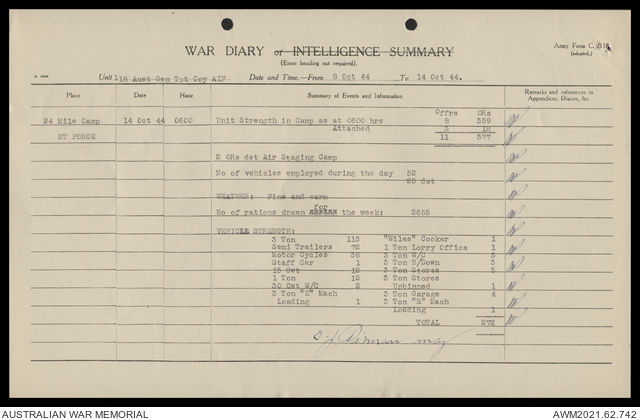 WAR DIARY or INTELLIGENCE SUMMARY
Army Form C. 2118.
(adapted.)
(Erase heading not required).
Unit 118 Aust Gen Tpt Coy AIF Date and Time.—From 8 Oct 44 To 14 Oct 44.
Place Date Hour Summary of Events and Information Remarks and references to Appendices, Diaries, &c.
Offrs ORs
24 Mile Camp 14 Oct 44 0600 Unit Strength in Camp as at 0600 hrs 8 359
Attached 3 18
NT FORCE 11 377
2 ORs det Air Staging Camp
No of vehicles employed during the day 52
25 det
WEATHER: Fine and warm
for
No of rations drawn the week: 2655
VEHICLE STRENGTH:
3 Ton 113 "Wiles" Cooker 1
Semi Trailers 72 1 Ton Lorry Office 1
Motor Cycles 38 3 Ton W/C 5
Staff Car 1 3 Ton B/Down 3
15 Cwt 12 3 Ton Stores 5
1 Ton 12 3 Ton Stores
30 Cwt W/C 2 Unbinned 1
3 Ton "A" Mach 3 Ton Garage 4
Loading 1 3 Ton "Z" Mach
Loading 1
TOTAL 272
AUSTRALIAN WAR MEMORIAL
AWM2021.62.742